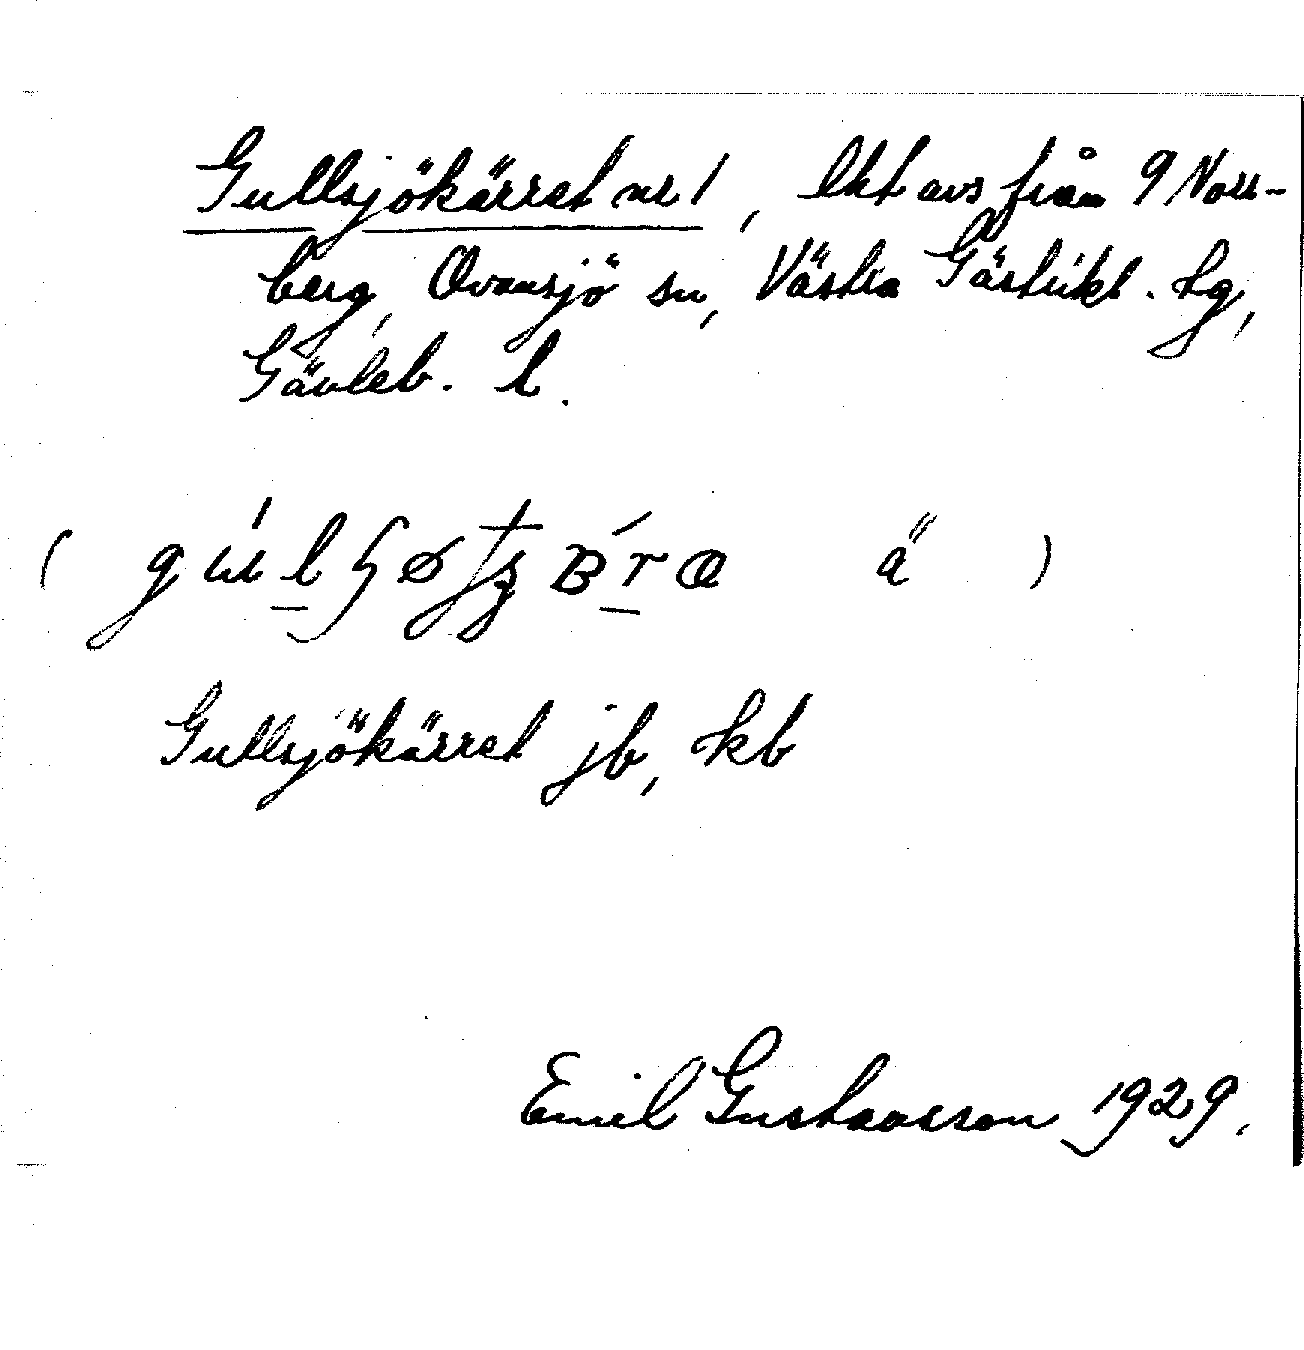 Gullsjökärret nr 1, lht avs från 9 Norr-
berg, Ovansjö sn, Västra Gästrikl. tg,
Gävleb. l.
( ä )
Gullsjökärret jb, kb
Emil Gustavsson 1929.